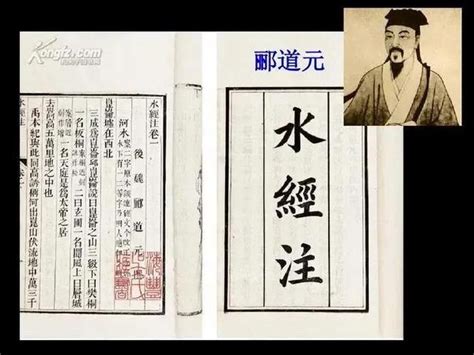 Kongfz.com
孔夫子旧书网
酈道元
水經注
水經注卷一
後魏酈道元
河水
崑崙墟在西北
三成爲崑崙丘崑崙說曰崑崙之山三級下曰樊桐
一名板桐 二曰玄圃一名閬風上曰層城
一名天庭是爲太帝之居
去嵩高五萬里地之中也
禹本紀與此同高誘稱河出崑山伏流地中萬三千
水經注 卷一